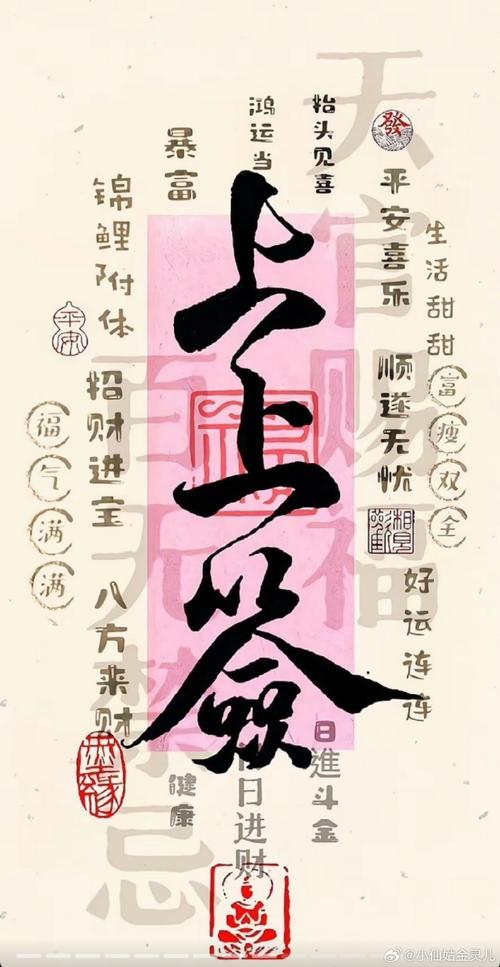 上上簽
天官赐福
百无禁忌
發
生活甜甜
富瘦双全
平安喜乐
顺遂无忧
好运连连
抬头见喜
鸿运当
暴富
锦鲤附体
平安
招财进宝
福气满满
八方来财
健康
日進斗金
日进财
@小仙姑金灵儿